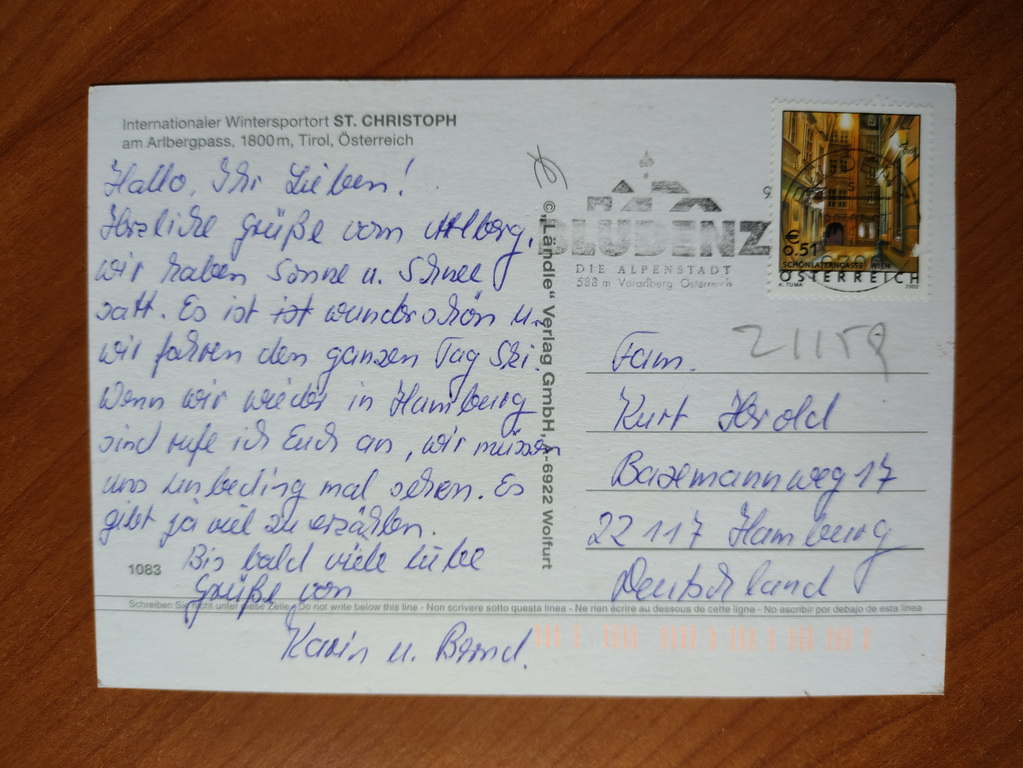 Internationaler Wintersportort ST. CHRISTOPH
am Arlbergpass, 1800m, Tirol, Österreich
Hallo, Ihr Lieben!
Herzliche Grüße vom Arlberg,
wir haben Sonne u. Schnee
satt. Es ist ist wunderschön u.
wir fahren den ganzen Tag Ski.
Wenn wir wieder in Hamburg
sind rufe ich Euch an, wir müssen
uns unbeding mal sehen. Es
gibt ja viel zu erzählen.
Bis bald viele liebe
Grüße von
Karin u. Bernd.
1083
© "Ländle" Verlag GmbH, A-6922 Wolfurt
BLUDENZ
DIE ALPENSTADT
588 m Vorarlberg Österreich
9
€
0.51
SCHÖNLATERNGASSE WIEN
ÖSTERREICH
A. TUMA
2002
21159
Fam.
Kurt Herold
22117 Hamburg
Deutschland
Schreiben Sie nicht unter diese Zeile - Do not write below this line - Non scrivere sotto questa linea - Ne rien écrire au dessous de cette ligne - No escribir por debajo de esta linea